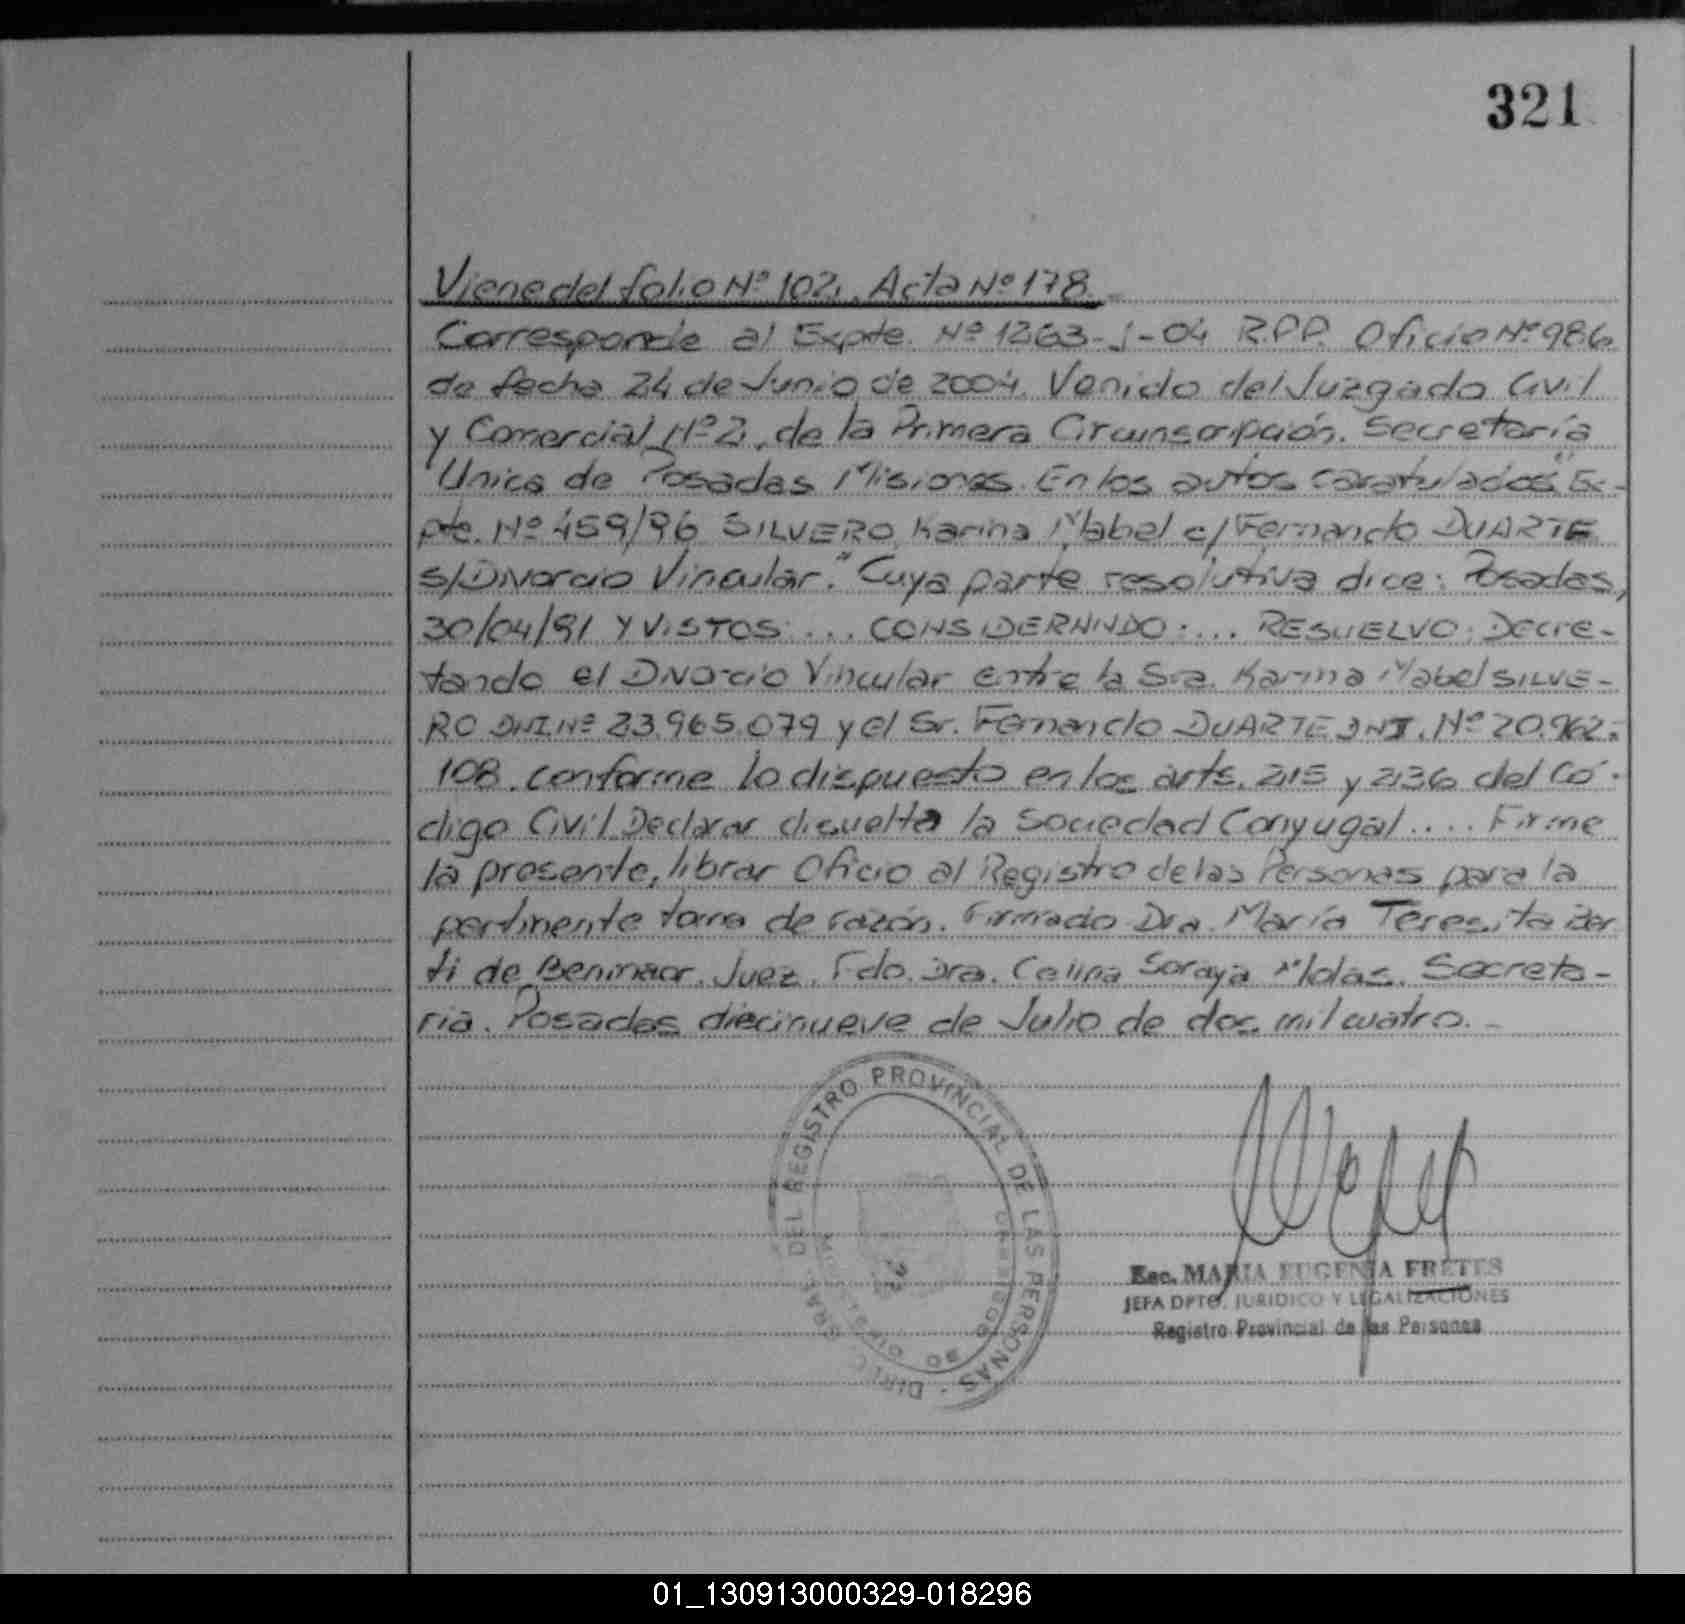 321
Viene del folio Nº 102. Acta Nº 178.
Corresponde al Expte. Nº 1263-J-04 R.P.P. Oficio Nº 986
de fecha 24 de Junio de 2004. Venido del Juzgado Civil
y Comercial Nº 2, de la Primera Circunscripción. Secretaría
Unica de Posadas Misiones. En los autos caratulados "Ex-
pte. Nº 459/96 SILVERO, Karina Mabel c/ Fernando DUARTE
s/Divorcio Vincular." Cuya parte resolutiva dice: Posadas,
30/04/91 Y VISTOS: ... CONSIDERANDO: ... RESUELVO: Decre-
tando el Divorcio Vincular entre la Sra. Karina Mabel SILVE-
RO DNI Nº 23.965.079 y el Sr. Fernando DUARTE DNI. Nº 20.962.
108. conforme lo dispuesto en los arts. 215 y 236 del Có-
digo Civil Declarar disuelta la Sociedad Conyugal .... Firme
la presente, librar Oficio al Registro de las Personas para la
pertinente toma de razón. Firmado Dra. María Teresita
ti de Juez. Fdo. Dra. Celina Soraya Molas. Secreta-
ria. Posadas diecinueve de Julio de dos mil cuatro.-
DIREC. GRAL. DEL REGISTRO PROVINCIAL DE LAS PERSONAS
Esc. MARIA EUGENIA FRETES
JEFA DPTO. JURIDICO Y LEGALIZACIONES
Registro Provincial de las Personas
01_130913000329-018296